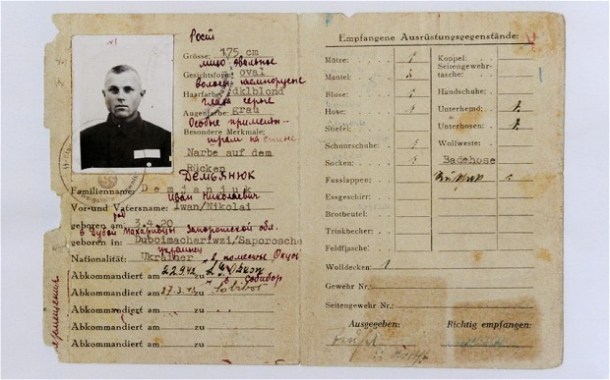 Рост
Grösse: 175 cm
лицо овальное
Gesichtsform: oval
Haarfarbe: dklblond
глаза серые
Augenfarbe: grau
Особые приметы-
Besondere Merkmale:
шрам на спине
Narbe auf dem
Rücken
Демьянюк
Familienname: Demjanjuk
Иван Николаевич
Vor- und Vatersname: Iwan/Nikolai
род
geboren am 3.4.20
Запорожской обл.
geboren in: Duboimachariwzi/Saporosche
украинец
Nationalität: Ukrainer
Abkommandiert am 22.9.42 zu
в Собибор
Abkommandiert am 27.3.43 zu Sobibor
Abkommandiert am zu
Abkommandiert am zu
Abkommandiert am zu
Empfangene Ausrüstungsgegenstände:
Mütze: 1
Mantel: 1
Bluse: 1
Hose: 1
Stiefel:
Schnürschuhe: 1
Socken: 1
Fusslappen:
Essgeschirr:
Brotbeutel:
Trinkbecher:
Feldflasche:
Wolldecken: 1
Koppel:
Seitengewehr-
tasche:
Handschuhe:
Unterhemd:
Unterhosen:
Wollweste:
Badehose
Gewehr Nr.:
Seitengewehr Nr.:
Ausgegeben: Richtig empfangen: